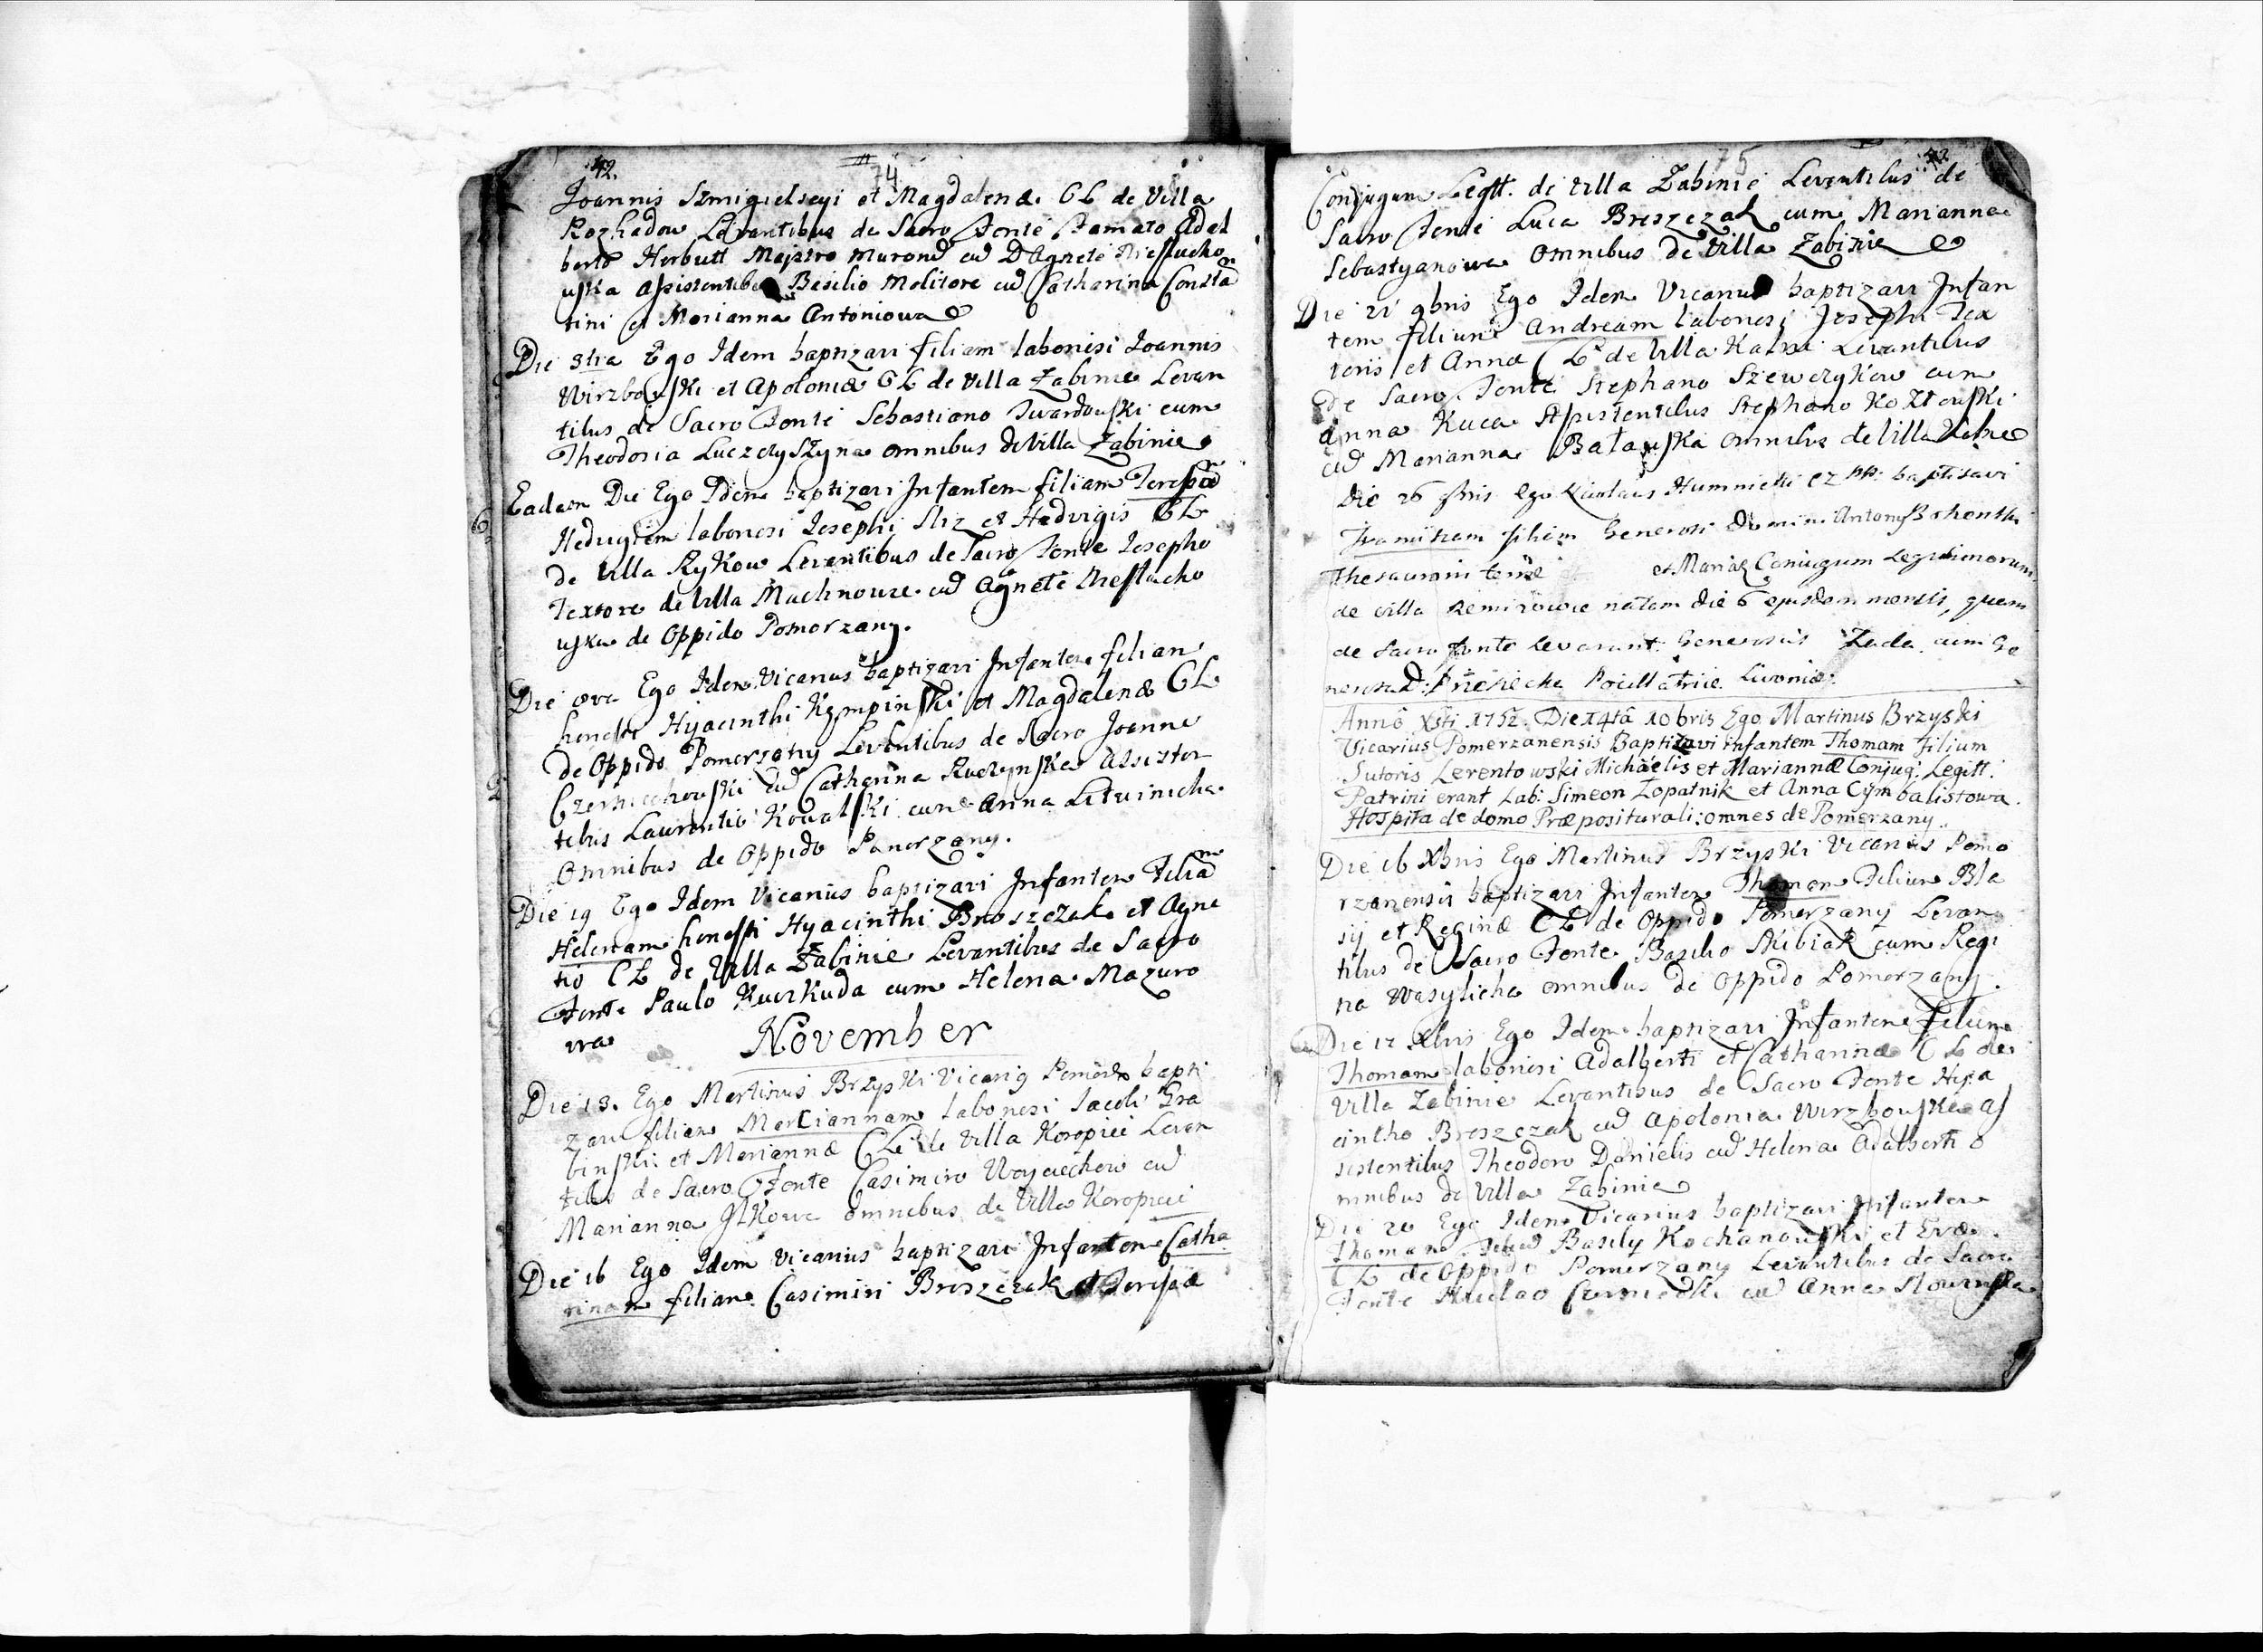 42.
74
Joannis Szmigielscyi et Magdalenæ CL de Villa
Rozhadow Levantibus de Sacro Fonte Famato Adal
berto Herbutt Majstro cu D Agnete
uska Assistentibus Basilio Molitore cu Catharina Consta
tini et Marianna Antoniowa
Die 3tia Ego Idem baptizavi filiam laboriosi Joannis
Wirzbowski et Apoloniæ CL de Villa Zabinie Levan
tibus de Sacro Fonte Sebastiano Twardowski cum
Theodosia omnibus de Villa Zabinie
Eadem Die Ego Idem baptizavi Infantem filiam
Hedvigem laboriosi Josephi Sliz et Hedvigis CL
de Villa Rykow Levantibus de Sacro Fonte Josepho
Textore de Villa Machnowce cu Agnete
uska de Oppido Pomorzany.
Die Ego Idem Vicarius baptizavi Infantem filiam
honesti Hyacinthi Kempinski et Magdalenæ CL
de Oppido Pomorzany Levantibus de Sacro Joanne
Czerniechowski cu Catharina Assisten
tibus Laurentio Kowalski cum Anna Litwinicha
Omnibus de Oppido Pomorzany.
Die 19 Ego Idem Vicarius baptizavi Infantem Filiam
Helenam honesti Hyacinthi Broszczak et Agne
tis CL de Villa Zabinie Levantibus de Sacro
Fonte Paulo Kuczkuda cum Helena Mazuro
wa
November
Die 13. Ego Martinus Brzyski Vicarig bapti
zavi filiam Mariannam laboriosi Jacobi Gra
binski et Mariannæ CL de Villa Koropiec Levan
tibus de Sacro Fonte Casimiro Woyciechow cu
Marianna Ilkowa omnibus de Villa
Die 16 Ego Idem Vicarius baptizavi Infantem Catha
rinam filiam Casimiri Broszczak et Teresæ
75
Conjugum Legtt. de Villa Zabinie Levantibus de
Sacro Fonte Luca Broszczak cum Marianna
Sebastyanowa omnibus de Villa Zabinie
Die 21 9bris Ego Idem Vicarius baptizavi Infan
tem filium Andream laboriosi Josephi Tex
toris et Annæ CL de Villa Kalne Levantibus
de Sacro Fonte Stephano Szewczykow cum
Anna Kuca Assistentibus Stephano Kozlowski
cu Marianna omnibus de Villa Kalne
Die 26 Ego baptisavi
filium Generosi Domini Antony
et Mariæ Coniugum Legitimorum
de villa Remizowce natam die 6 ejusdem mensis, quam
de Sacro Fonte levarunt Generosus Zada cum Ge
nerosa D: Pocillatrice Livoniæ.
Anno Xsti 1752. Die 14ta 10bris Ego Martinus Brzyski
Vicarius Pomerzanensis Baptizavi infantem Thomam Filium
Sutoris Lerentowski Michaelis et Mariannæ Conjug: Legitt:
Patrini erant Lab: Simeon Łopatnik et Anna Cymbalistowa.
Hospita de domo Præpositurali: omnes de Pomerzany.
Die 16 Xbris Ego Martinus Brzyski Vicarius Pomo
rzanensis baptizavi Infantem Thomam Filium Bla
sij et Reginæ CL de Oppido Pomerzany Levan
tibus de Sacro Fonte Basilio Skibiak cum Regi
na Wasylicha omnibus de Oppido Pomerzany.
Die 17 Xbris Ego Idem baptizavi Infantem Filium
Thomam laboriosi Adalberti et Catharinæ CL de
Villa Zabinie Levantibus de Sacro Fonte Hya
cintho Broszczak cu Apolonia Wirzbowska As
sistentibus Theodoro Danielis cu Helena Adalberti o
mnibus de Villa Zabinie
Die 20 Ego Idem Vicarius baptizavi Infantem
Thomam Basily Kochanowski et Evæ
CL de Oppido Pomerzany Levantibus de Sacro
Fonte cu Anna